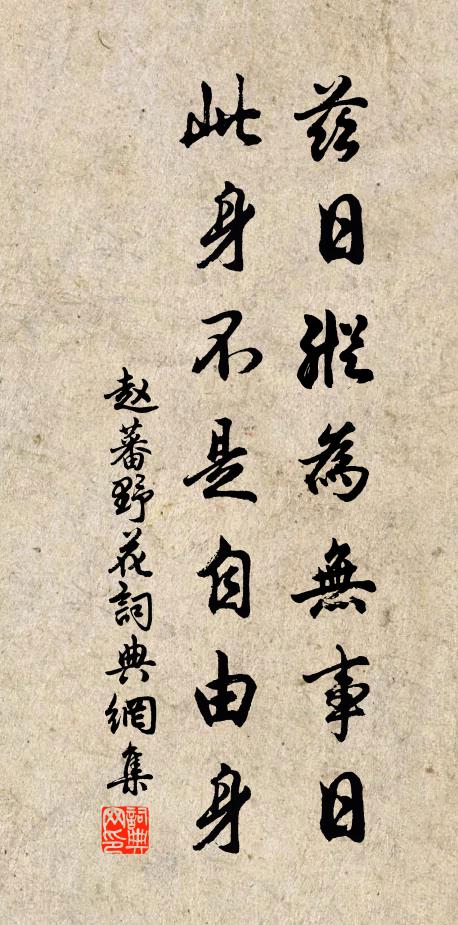 茲日縱為無事日
此身不是自由身
赵蕃野花詞典網集
詞典网印